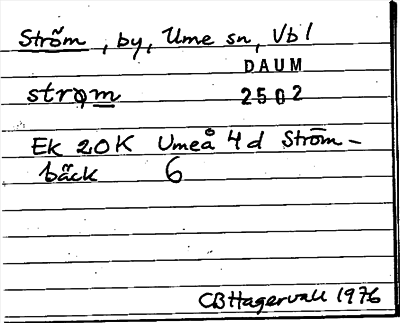 Ström, by, Ume sn, Vbl
DAUM
strøm 2502
Ek 20K Umeå 4d Ström-
bäck 6
CBHagervall 1976